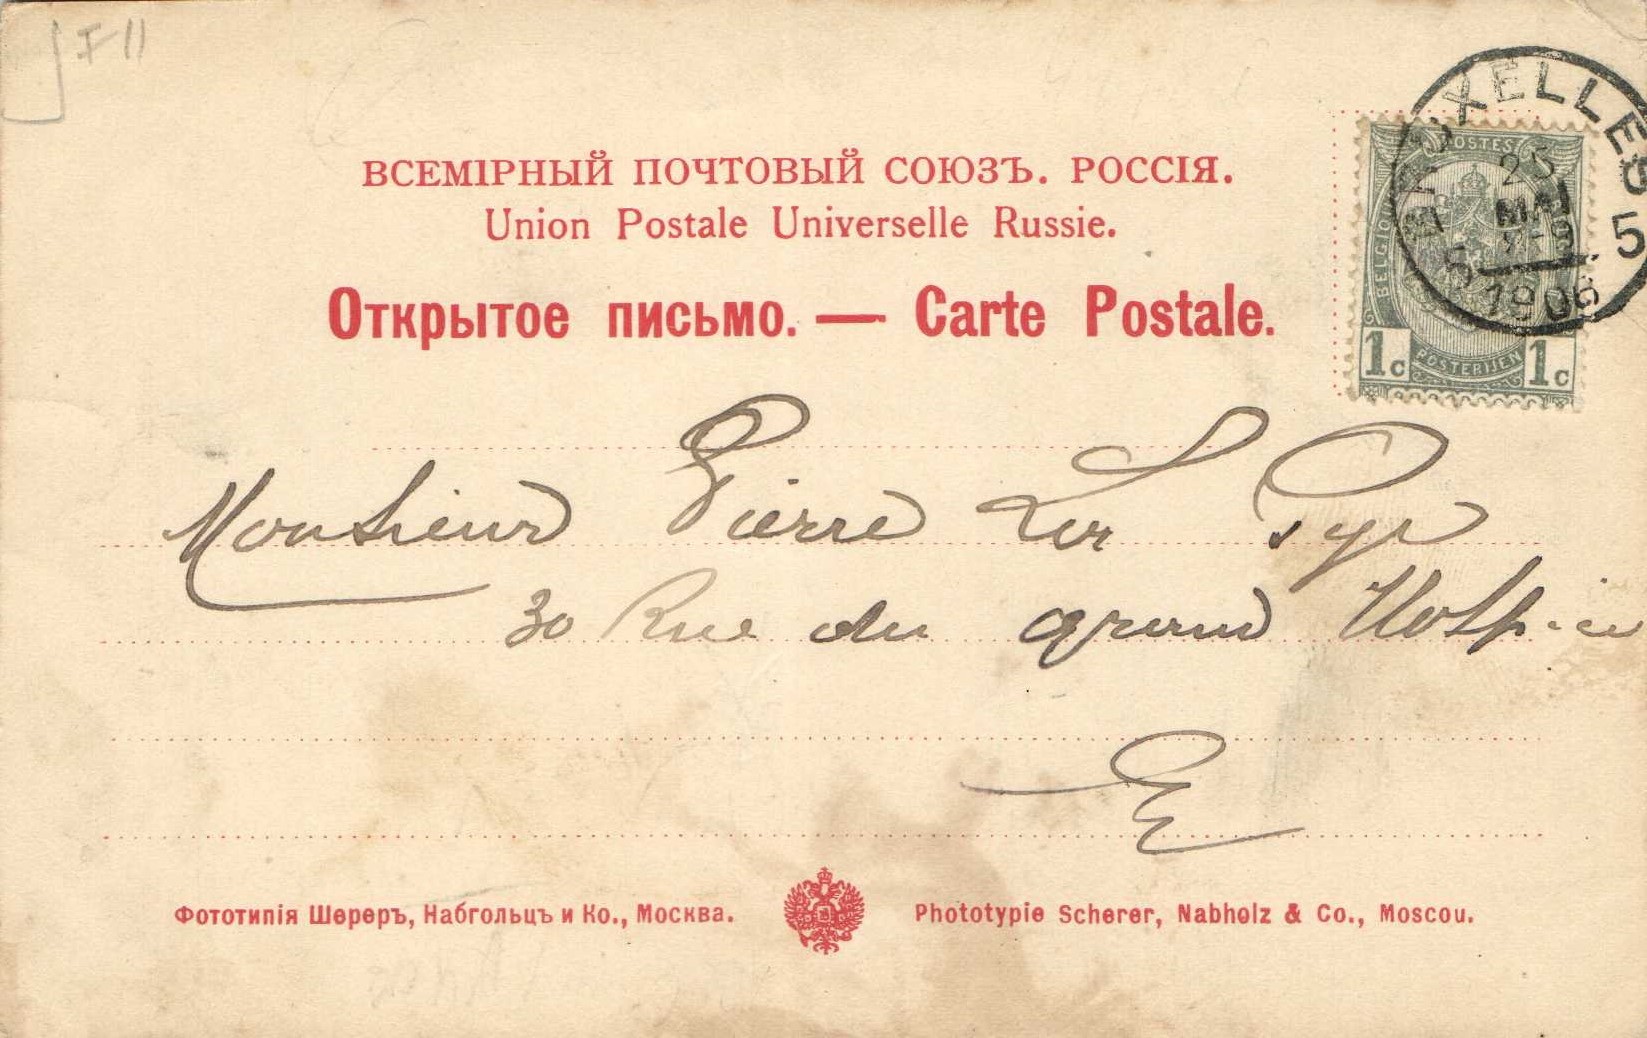 F11
ВСЕМІРНЫЙ ПОЧТОВЫЙ СОЮЗЪ. РОССІЯ.
Union Postale Universelle Russie.
Открытое письмо. — Carte Postale.
BRUXELLES 5
25
MAI
1906
POSTES
BELGIQUE
POSTERIJEN
1c 1c
Monsieur Pierre
30 Rue du grand Hospice
Фототипія Шереръ, Набгольцъ и Ко., Москва.
Phototypie Scherer, Nabholz & Co., Moscou.